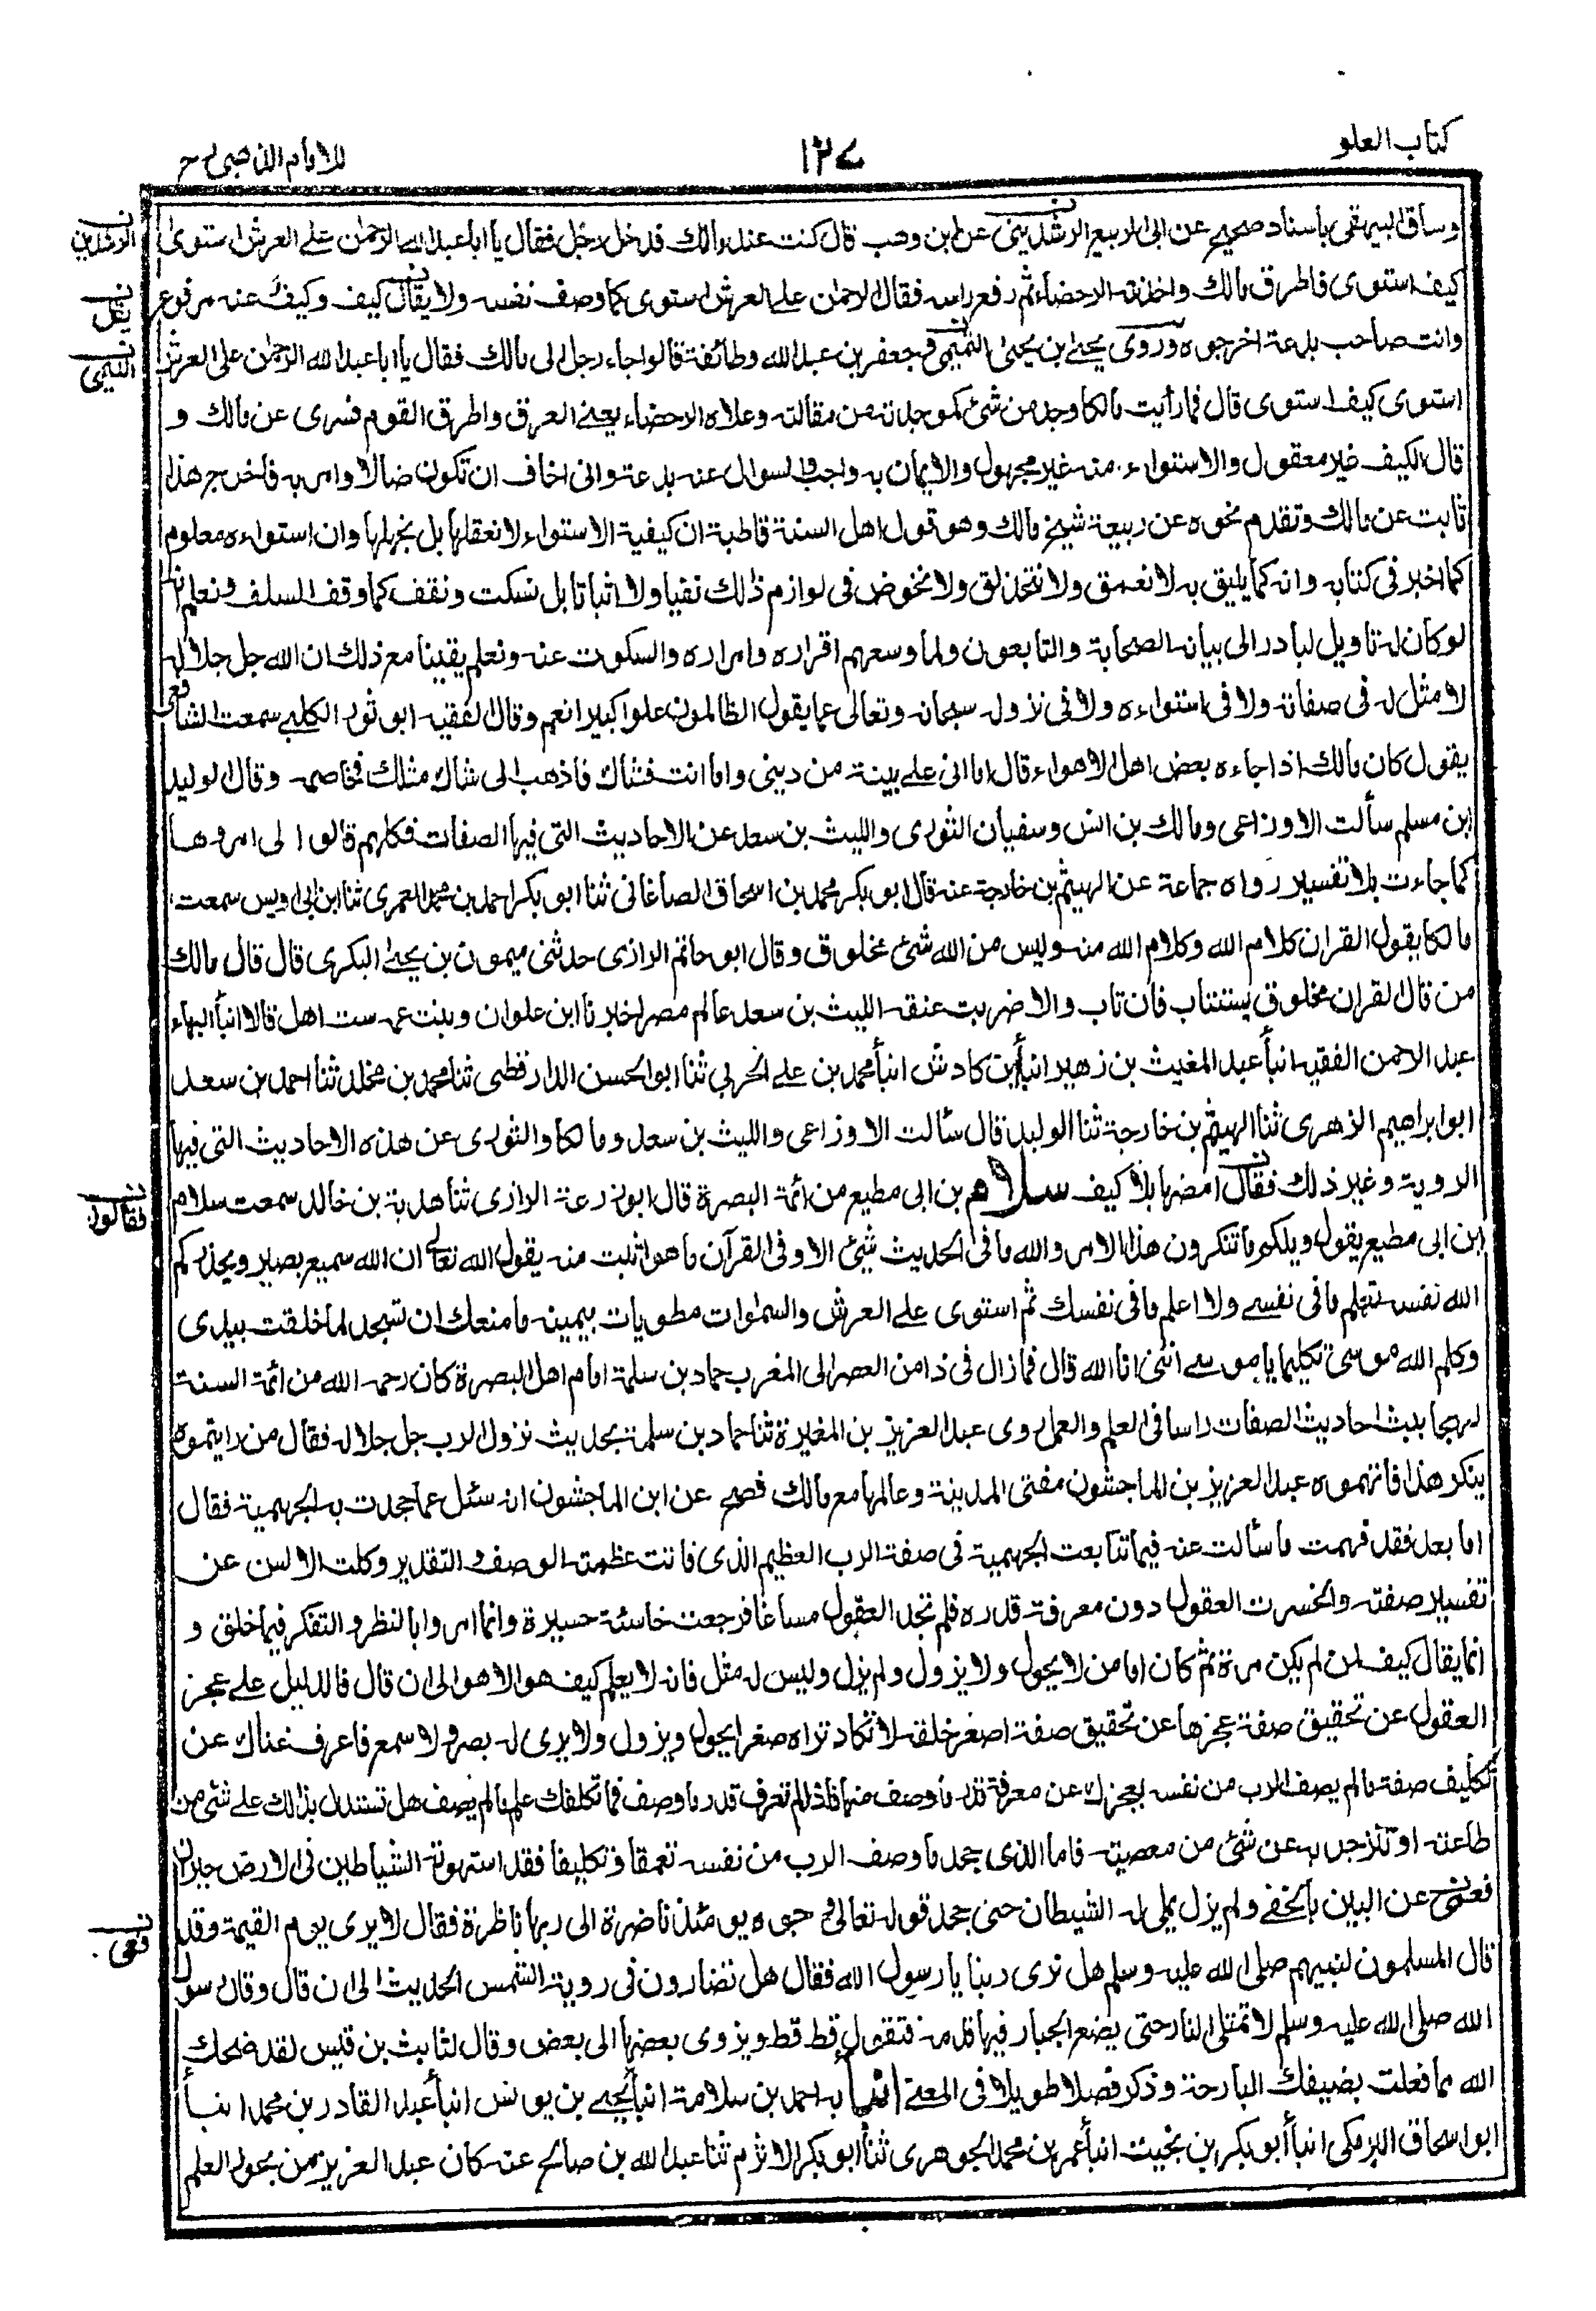 كتاب العلو
١٢٧
للامام الذهبى رح
وساق البيهقى باسناد صحيح عن ابى الربيع الرشدينى عن ابن وهب قال كنت عند مالك فدخل رجل فقال يا ابا عبد الله الرحمن على العرش استوى
الرشدين
كيف استوى فاطرق مالك واخذته الرحضاء ثم رفع راسه فقال الرحمن على العرش استوى كما وصف نفسه ولا يقال كيف وكيف عنه مرفوع
يقل
وانت صاحب بدعة اخرجوه وروى يحيى بن يحيى التميمى وجعفر بن عبد الله وطائفة قالوا جاء رجل الى مالك فقال يا ابا عبد الله الرحمن على العرش
التيمى
استوى كيف استوى قال فما رأيت مالكا وجد من شئ كموجدته من مقالته وعلاه الرحضاء يعنى العرق واطرق القوم فسرى عن مالك و
قال الكيف غير معقول والاستواء منه غير مجهول والايمان به واجب والسوال عنه بدعة وانى اخاف ان تكون ضالا وامر به فاخرج هذا
ثابت عن مالك وتقدم نحوه عن ربيعة شيخ مالك وهو قول اهل السنة قاطبة ان كيفية الاستواء لا نعقلها بل نجهلها وان استواءه معلوم
كما اخبر فى كتابه وانه كما يليق به لا نعمق ولا نتحذلق ولا نخوض فى لوازم ذلك نفيا ولا اثباتا بل نسكت ونقف كما وقف السلف ونعلم انه
لو كان له تاويل لبادر الى بيانه الصحابة والتابعون ولما وسعهم اقراره وامراره والسكوت عنه ونعلم يقينا مع ذلك ان الله جل جلاله
لا مثل له فى صفاته ولا فى استواءه ولا فى نزوله سبحانه وتعالى عما يقول الظالمون علوا كبيرا نعم وقال الفقيه ابو ثور الكلبى سمعت الشافعى
يقول كان مالك اذا جاءه بعض اهل الاهواء قال اما انى على بينة من دينى واما انت فشاك فاذهب الى شاك مثلك فخاصمه وقال الوليد
ابن مسلم سألت الاوزاعى ومالك بن انس وسفيان الثورى والليث بن سعد عن الاحاديث التى فيها الصفات فكلهم قالوا لى امروها
كما جاءت بلا تفسير رواه جماعة عن الهيثم بن خارجة عنه قال ابو بكر محمد بن اسحاق الصاغانى ثنا ابو بكر احمد بن محمد العمرى ثنا ابن ابى اويس سمعت
مالكا يقول القران كلام الله وكلام الله منه وليس من الله شئ مخلوق وقال ابو حاتم الرازى حدثنى ميمون بن يحيى البكرى قال قال مالك
من قال القران مخلوق يستتاب فان تاب والا ضربت عنقه الليث بن سعد عالم مصر اخبرنا ابن علوان وبنت عمه ست اهل قالا انبأ البهاء
عبد الرحمن الفقيه انبأ عبد المغيث بن زهير انبأ ابن كادش انبأ محمد بن على الحربى ثنا ابو الحسن الدارقطنى ثنا محمد بن مخلد ثنا احمد بن سعد
ابو ابراهيم الزهرى ثنا الهيثم بن خارجة ثنا الوليد قال سألت الاوزاعى والليث بن سعد ومالكا والثورى عن هذه الاحاديث التى فيها
الروية وغير ذلك فقال امضها بلا كيف سلام بن ابى مطيع من ائمة البصرة قال ابو زرعة الرازى ثنا هدبة بن خالد سمعت سلام
فقالوا
ابن ابى مطيع يقول ويلكم ما تنكرون هذا الامر والله ما فى الحديث شئ الا وفى القرآن ما هو اثبت منه يقول الله تعالى ان الله سميع بصير ويحذركم
الله نفسه تعلم ما فى نفسى ولا اعلم ما فى نفسك ثم استوى على العرش والسموات مطويات بيمينه ما منعك ان تسجد لما خلقت بيدى
وكلم الله موسى تكليما يا موسى اننى انا الله قال فما زال فى ذا من العصر الى المغرب حماد بن سلمة امام اهل البصرة كان رحمه الله من ائمة السنة
لهجا ببث احاديث الصفات راسا فى العلم والعمل روى عبد العزيز بن المغيرة ثنا حماد بن سلمة بحديث نزول الرب جل جلاله فقال من رايتموه
ينكر هذا فاتهموه عبد العزيز بن الماجشون مفتى المدينة وعالمها مع مالك فصح عن ابن الماجشون انه سئل عما جحدت به الجهمية فقال
اما بعد فقد فهمت ما سألت عنه فيما تتابعت الجهمية فى صفة الرب العظيم الذى فاتت عظمته الوصف والتقدير وكلت الالسن عن
تفسير صفته وانحسرت العقول دون معرفة قدره فلم تجد العقول مساغا فرجعت خاسئة حسيرة وانما امروا بالنظر والتفكر فيما خلق و
انما يقال كيف لمن لم يكن مرة ثم كان اما من لا يحول ولا يزول ولم يزل وليس له مثل فانه لا يعلم كيف هو الا هو الى ان قال فالدليل على عجز
العقول عن تحقيق صفته عجزها عن تحقيق صفة اصغر خلقه لا تكاد تراه صغرا يحول ويزول ولا يرى له بصر ولا سمع فاعرف غناك عن
تكليف صفة ما لم يصف الرب من نفسه بعجزك عن معرفة قدر ما وصف منها فاذا لم تعرف قدر ما وصف فما تكلفك علم ما لم يصف هل تستدل بذالك على شئ من
طاعته او تنزجر به عن شئ من معصيته فاما الذى جحد ما وصف الرب من نفسه تعمقا وتكليفا فقد استهوته الشياطين فى الارض حيران
فعمى عن البين بالخفى ولم يزل يملى له الشيطان حتى جحد قوله تعالى وجوه يومئذ ناضرة الى ربها ناظرة فقال لا يرى يوم القيمة وقد
فعمى
قال المسلمون لنبيهم صلى الله عليه وسلم هل نرى ربنا يا رسول الله فقال هل تضارون فى روية الشمس الحديث الى ان قال وقال رسول
الله صلى الله عليه وسلم لا تمتلى النار حتى يضع الجبار فيها قدمه فتقول قط قط ويزوى بعضها الى بعض وقال لثابت بن قيس لقد ضحك
الله مما فعلت بضيفك البارحة وذكر فصلا طويلا فى المعنى انبأ به احمد بن سلامة انبأ يحيى بن يونس انبأ عبد القادر بن محمد انبأ
ابو اسحاق البرمكى انبأ ابو بكر ابن بخيت انبأ عمر بن محمد الجوهرى ثنا ابو بكر الاثرم ثنا عبد الله بن صالح عنه كان عبد العزيز من بحور العلم